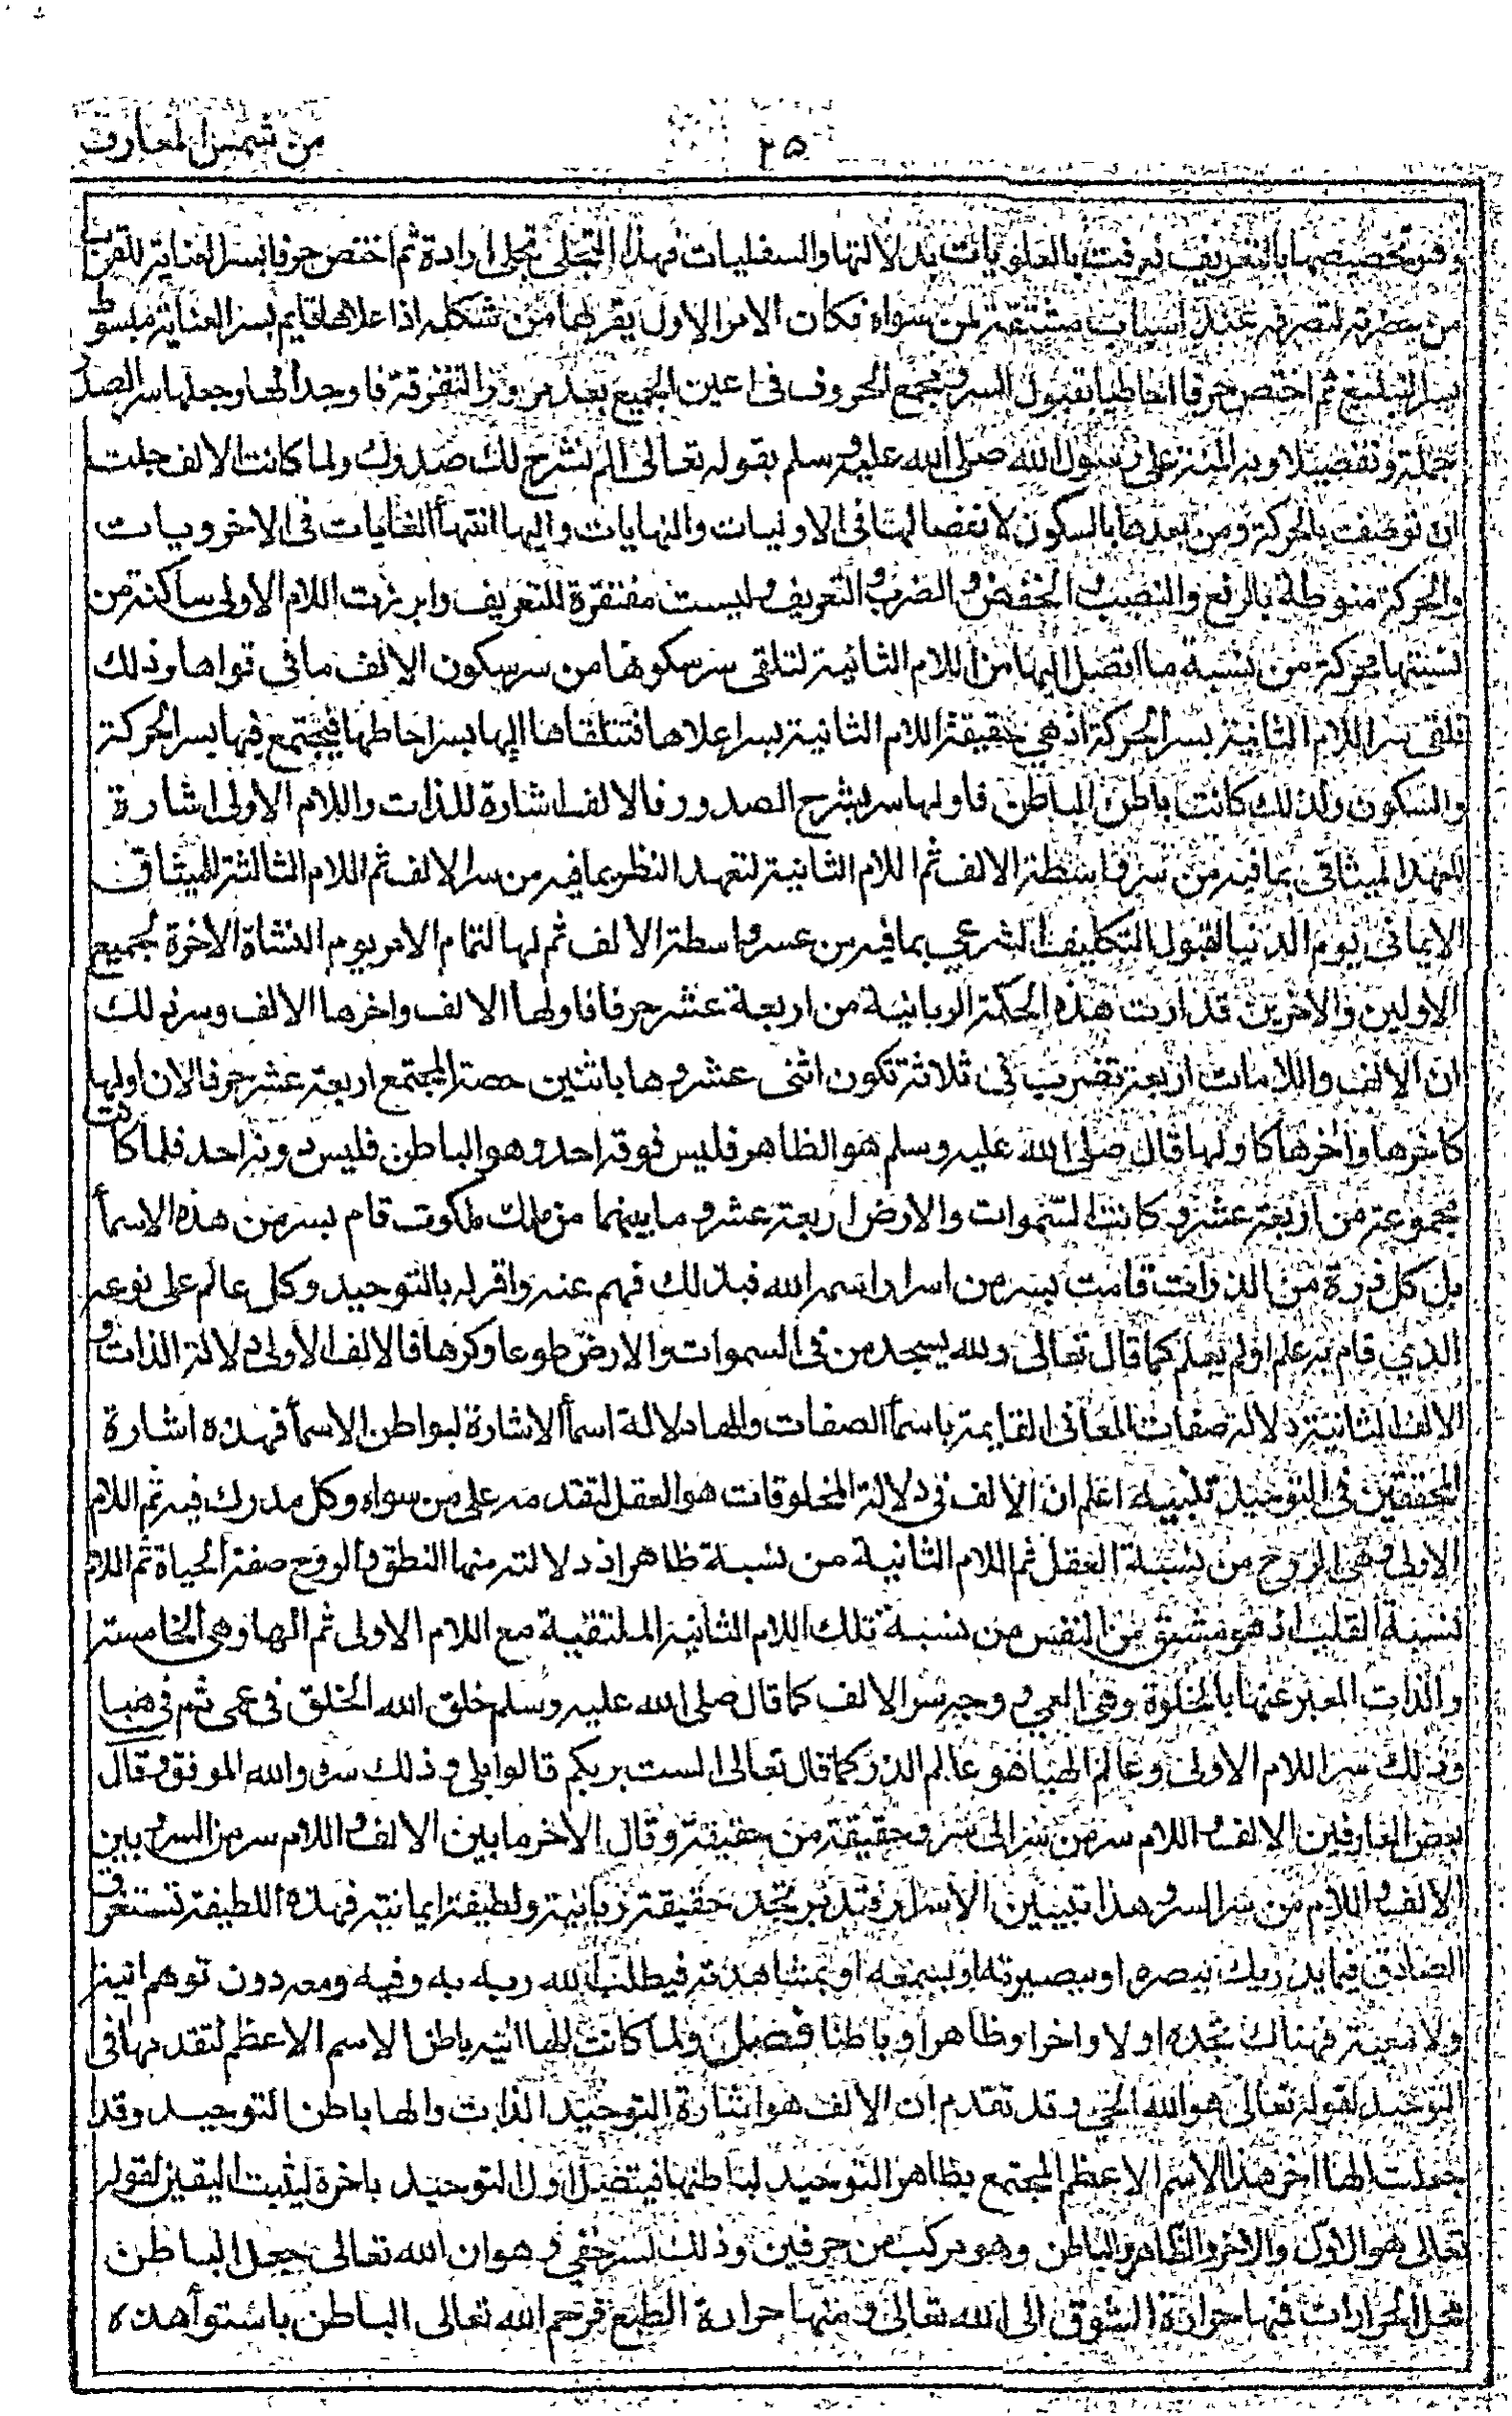 من شمس المعارف
٢٥
وقع تخصيصها بالتعريف فعرفت بالعلويات بدلالتها والسفليات فهذا التجلى تجلى ارادة ثم اختص حرفا بسر العناية للقرب
من حضرته لتصرفه عند اسباب لمن سواه فكان الامر الاول يقر لها من شكله اذا علاها قايم بسر العناية مبسوط
بسر التبليغ ثم اختص حرفا احاطيا بقبول السر ومجمع الحروف فى اعين الجميع بعد والتفرقة فاوجد الها وجعلها سر الصدر
جملة وتفصيلا وبه المنة على رسول الله صلى الله عليه وسلم بقوله تعالى الم نشرح لك صدرك ولما كانت الالف جلت
ان توصف بالحركة ومن بعدها بالسكون لانفصالها فى الاوليات والنهايات واليها انتهأ الغايات فى الاخرويات
والحركة منوطة بالرفع والنصب والخفض والضرب والتعريف وليست مفتقرة للتعريف وابرزت اللام الاولى ساكنة من
نسبتها محركة من نسبة ما اتصل اليها من اللام الثانية لتلقى سر سكونها من سر سكون الالف ما فى تواها وذلك
تلقى سر اللام الثانية بسر الحركة اذ هى حقيقة اللام الثانية بسر اعلاها فتتلقاها اليها بسر احاطتها فيجتمع فيها بسر الحركة
والسكون ولذلك كانت باطن الباطن فاولها سر بشرح الصدور فالالف اشارة للذات واللام الاولى اشارة
للعهد الميثاقى بما فيه من سر واسطة الالف ثم اللام الثانية لتعهد النظر بما فيه من سر الالف ثم اللام الثالثة للميثاق
الايمانى يوم الدنيا لقبول التكليف الشرعي بما فيه من عسر واسطة الالف ثم لها لتمام الامر يوم النشاة الاخرة لجميع
الاولين والاخرين قد ارت هذه الحكمة الربانية من اربعة عشر حرفا فاولها الالف واخرها الالف وسر ذلك
ان الالف واللامات اربعة تضرب فى ثلاثة تكون اثنى عشر وها باثنين حصة المجتمع اربعة عشر حرفا لان اولها
كاخرها واخرها كاولها قال صلى الله عليه وسلم هو الظاهر فليس فوقه احد وهو الباطن فليس دونه احد فلما كانت
مجموعة من اربعة عشر وكانت السموات والارض اربعة عشر وما بينهما من ملك ملكوت قام بسر من هذه الاسمأ
بل كل ذرة من الذرات قامت بسر من اسرار اسمه الله فبذلك فهم عنه واقر له بالتوحيد وكل عالم على نوعه
الذي قام به علم او لم يعلم كما قال تعالى ولله يسجد من فى السموات والارض طوعا وكرها فالالف الاولى دلالة الذات و
الالف الثانية دلالة صفات المعانى القايمة باسمأ الصفات والها دلالة اسمأ الاشارة لبواطن الاسمأ فهذه اشارة
المحققين فى التوحيد تنبيه اعلم ان الالف فى دلالة المخلوقات هو العقل لتقدمه على من سواه وكل مدرك فيه ثم اللام
الاولى وهى الروح من نسبة العقل ثم اللام الثانية من نسبة ظاهر اذ دلالته منها النطق والروح صفة الحياة ثم اللام
نسبة القلب اذ هو مشتق من النفس من نسبة تلك اللام الثانية الملتقية مع اللام الاولى ثم الها وهى الخامسة
والذات المعبر عنها بالخلوة وهى العمى وجبر سر الالف كما قال صلى الله عليه وسلم خلق الله الخلق فى عمى ثم فى هبا
وذلك سر اللام الاولى وعالم الهبا هو عالم الذر كما قال تعالى الست بربكم قالوا بلى وذلك سره والله الموفق وقال
بعض العارفين الالف واللام سر من سر الى سر وحقيقة من حقيقة وقال الاخر ما بين الالف واللام سر من السر وبين
الالف واللام من سر السر وهذا تبيين الاسرار فتدبر تجد حقيقة ربانية ولطيفة ايمانية فهذه اللطيفة تستغرق
الصادق فيما يدريك ببصره او ببصيرته او بسمعه او بمشاهدته فيطلب الله ربه به وفيه ومعه دون توهم انية
ولا معية فهناك تجده اولا واخرا وظاهرا وباطنا فصل ولما كانت الها اليه باطن الاسم الاعظم لتقدمها فى
التوحيد لقوله تعالى هو الله الحى وقد تقدم ان الالف هو اشارة التوحيد الذات والها باطن التوحيد وقد
جعلت الها اخر هذا الاسم الاعظم المجتمع بظاهر التوحيد لباطنها فيتصل اول التوحيد باخره ليثبت اليقين لقوله
تعالى هو الاول والاخر والظاهر والباطن وهو مركب من حرفين وذلك لسر خفي وهو ان الله تعالى جعل الباطن
محل الحرارات فمنها حرارة الشوق الى الله تعالى ومنها حرارة الطبع فرحم الله تعالى الباطن باستوأ هذه